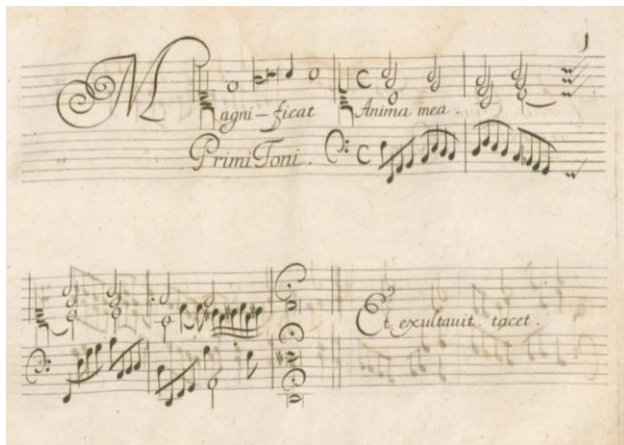 1
Magni-ficat Anima mea.
Primi Toni.
Et exultauit tacet.